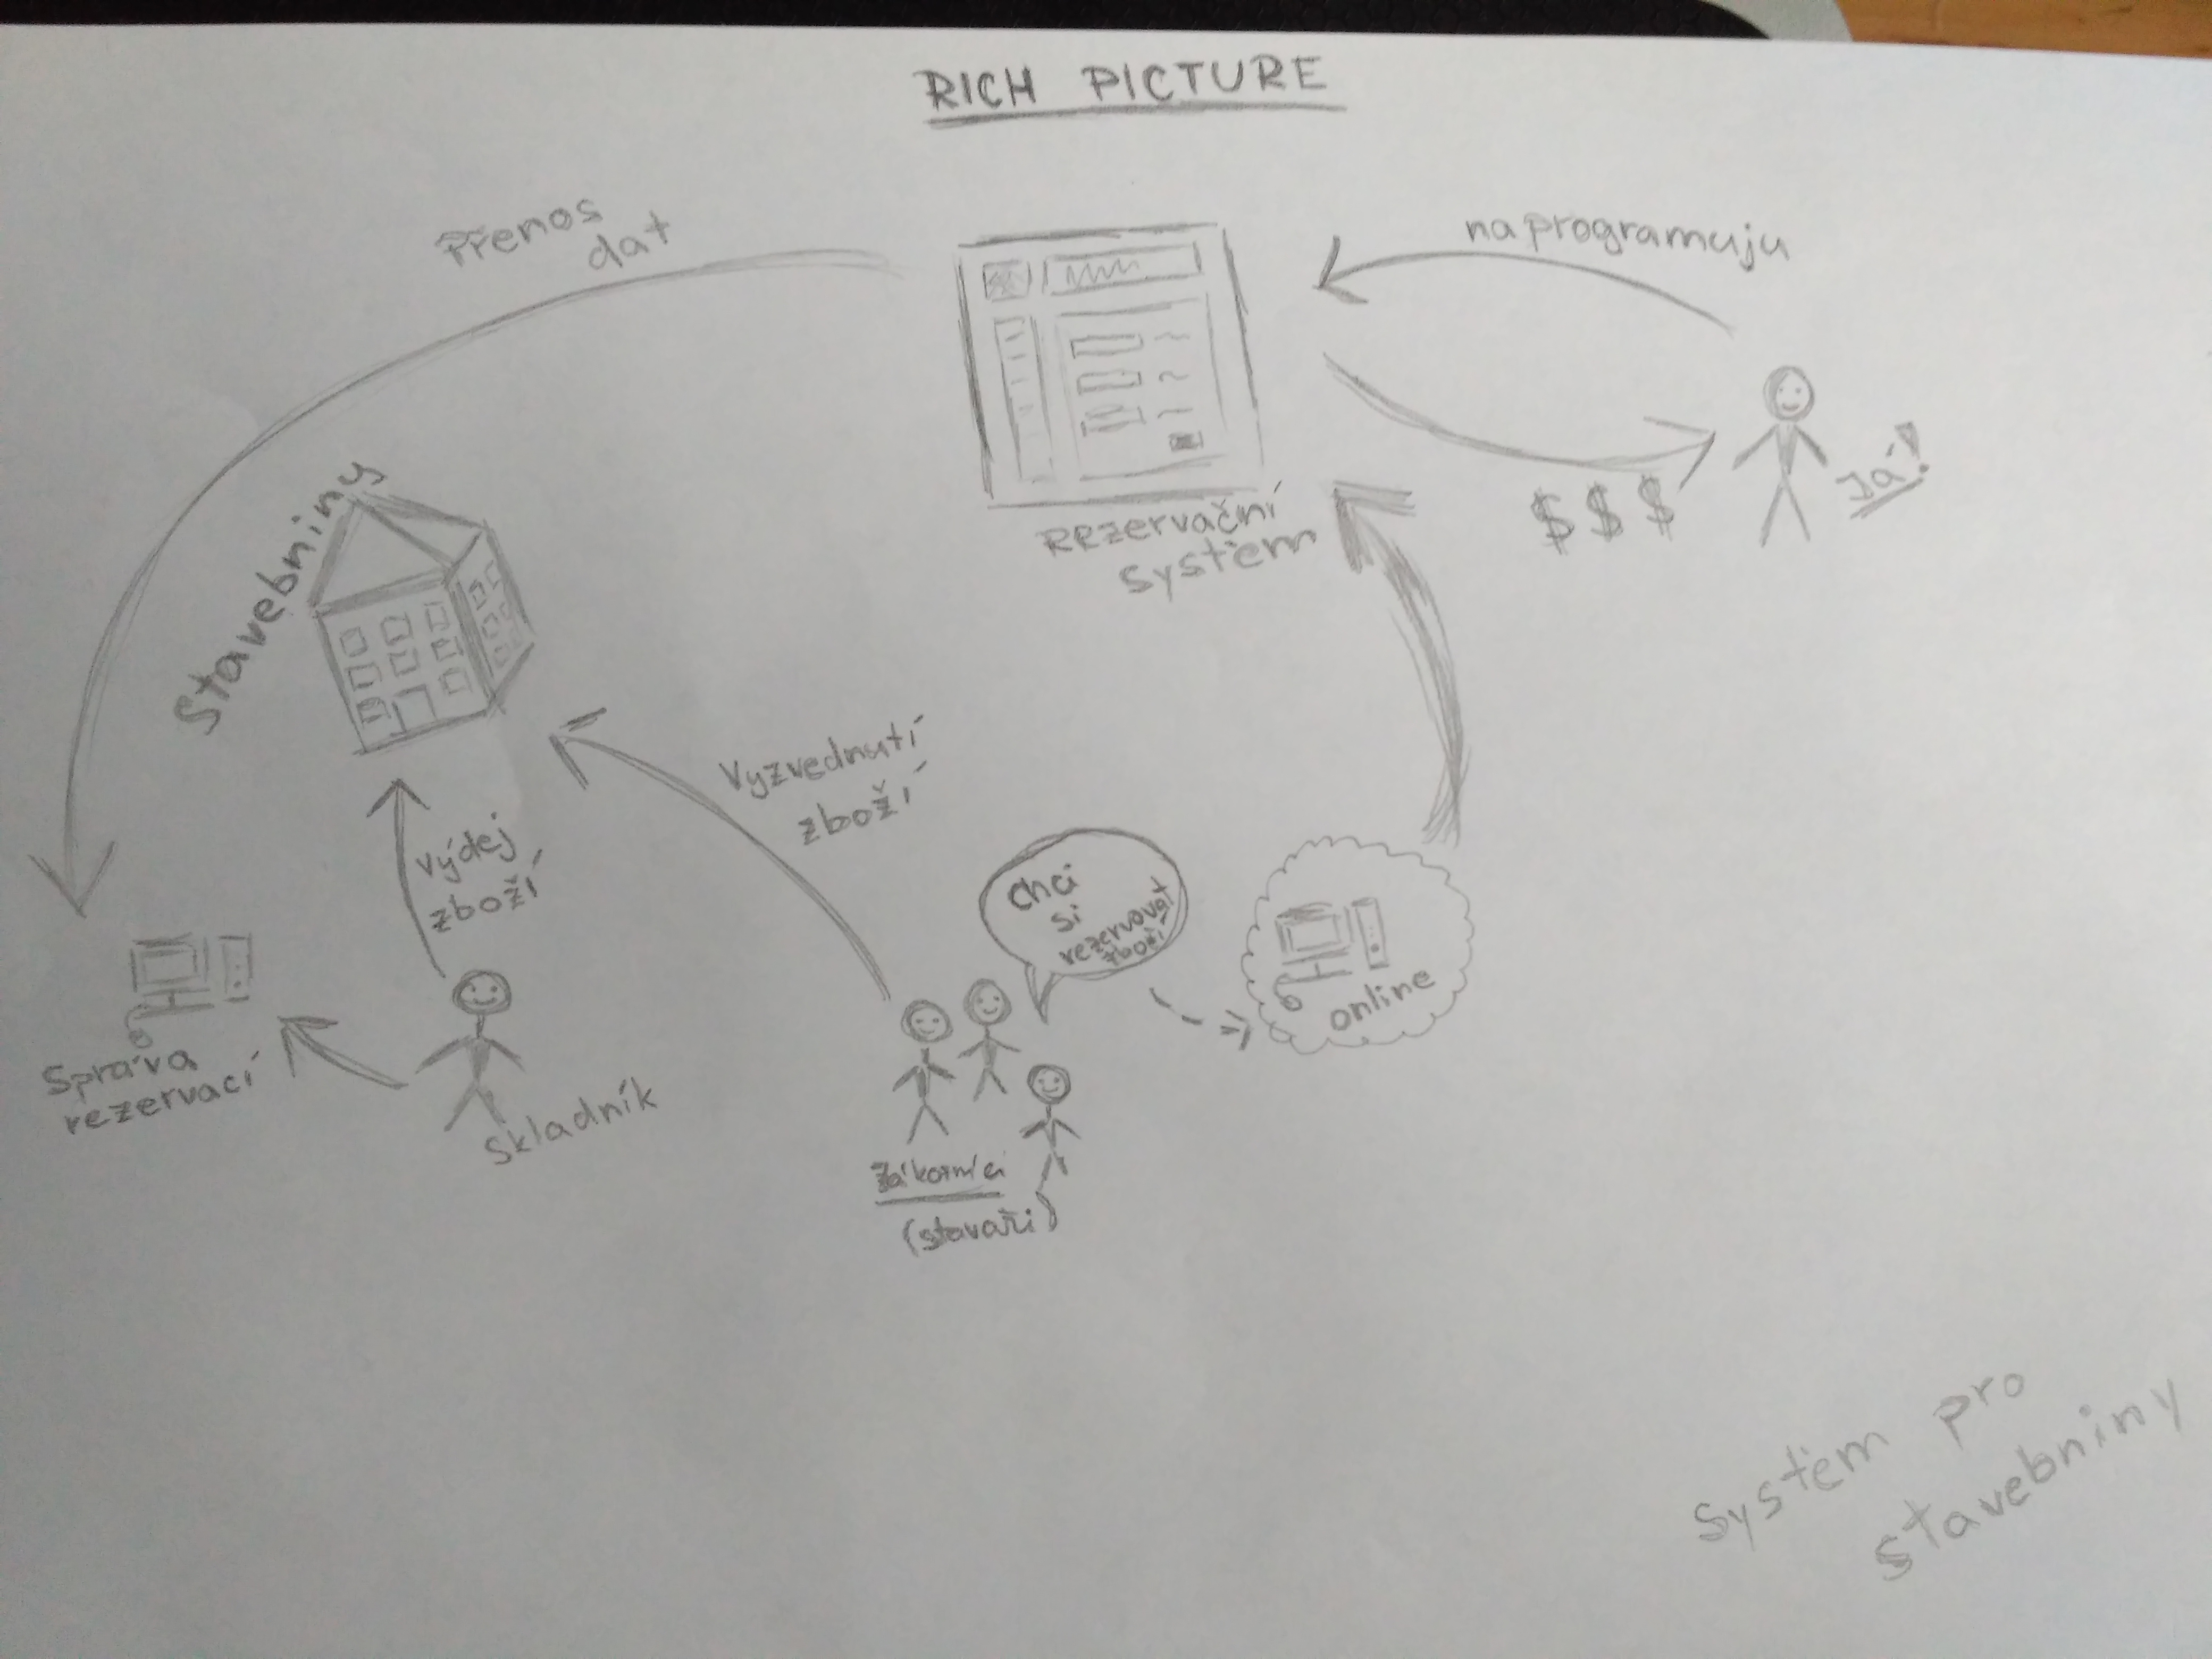 RICH PICTURE
Přenos
dat
naprogramuju
Já!
$ $ $
Rezervační
systém
Stavebniny
Vyzvednutí
zboží
Výdej
zboží
Chci
si
rezervovat
zboží
online
Správa
rezervací
Skladník
Zákazníci
(stavaři)
Systém pro
stavebniny